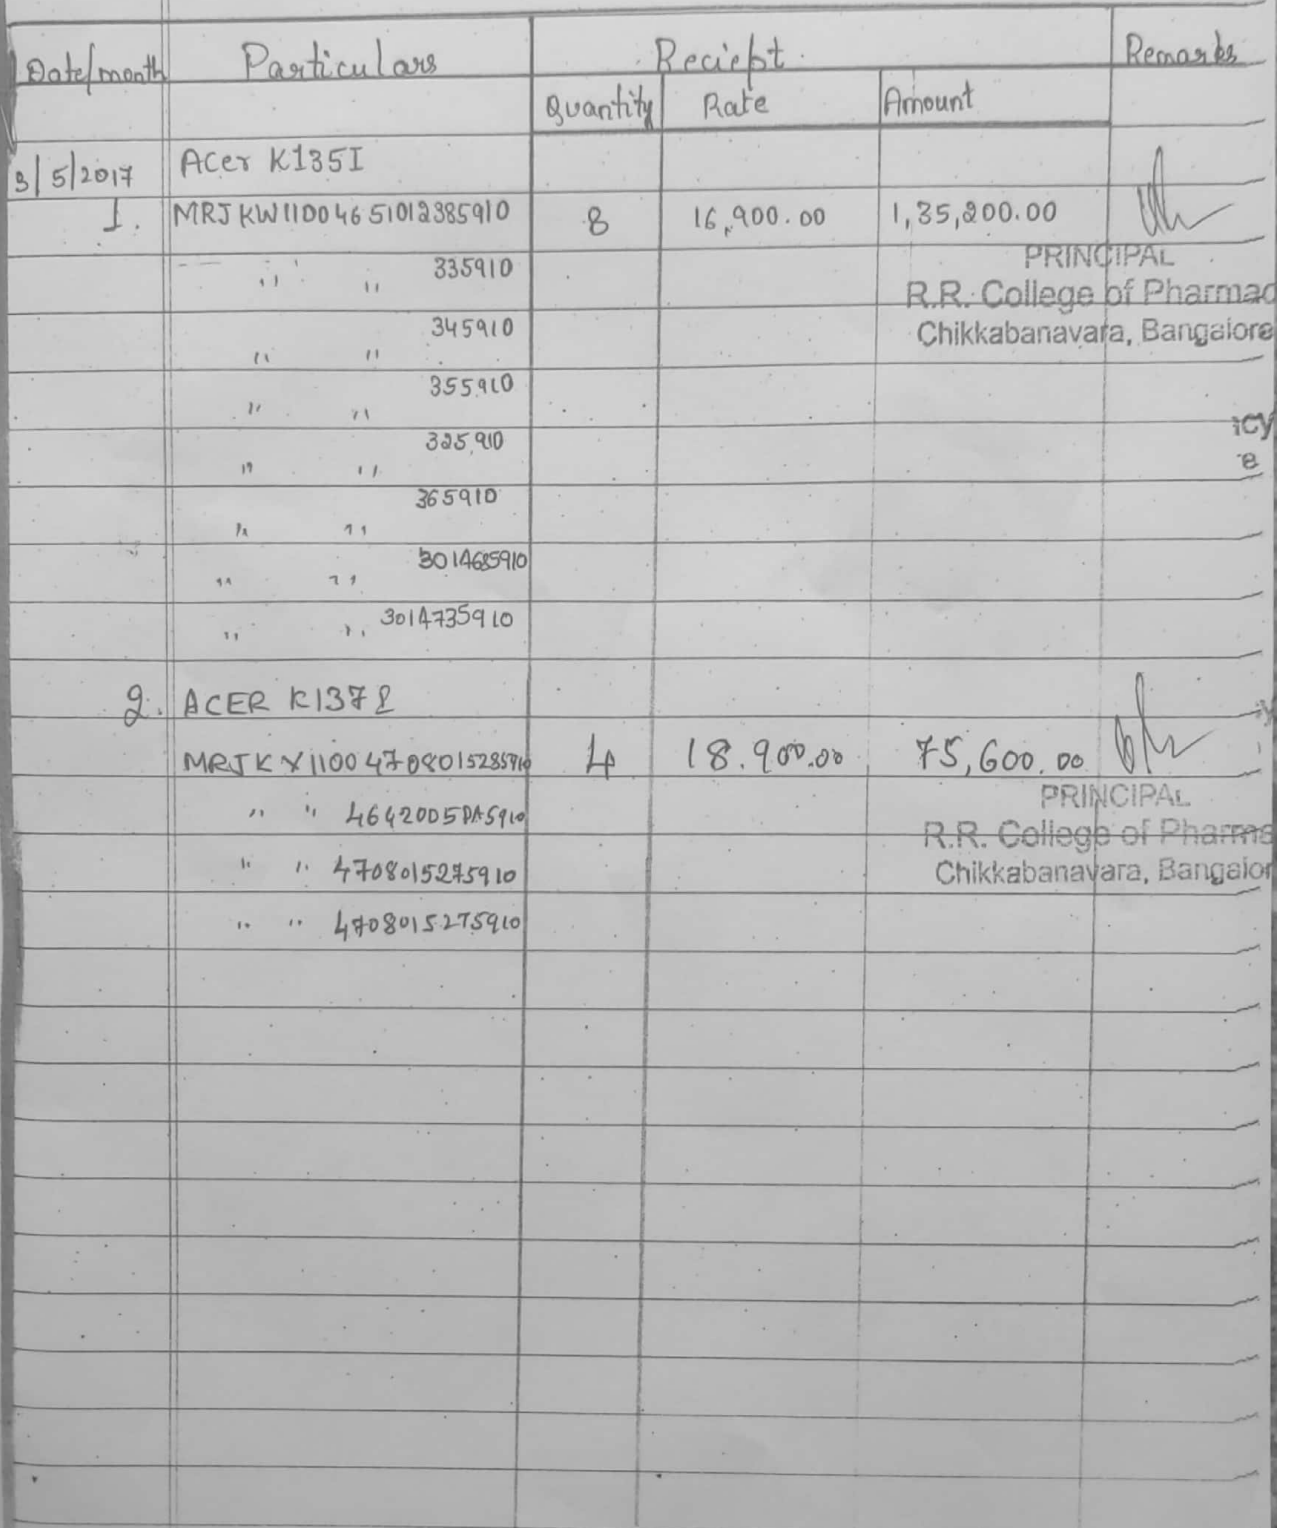 Date/month Particulars Reciept. Remarks
Quantity Rate Amount
3/5/2017 Acer K135I
1. MRJKW11004651012385910 8 16,900.00 1,35,200.00
PRINCIPAL
,, ,, 335910
R.R. College of Pharmac
,, ,, 345910
Chikkabanavara, Bangalore
,, ,, 355910
icy
,, ,, 325910
e
,, ,, 365910
,, ,, 3014685910
,, ,, 3014735910
2. ACER K137
MRJKX11004708015285910 4 18.900.00 75,600.00
PRINCIPAL
,, ,, 4642005PA5910
R.R. College of Pharma
,, ,, 4708015275910
Chikkabanavara, Bangalor
,, ,, 4708015275910